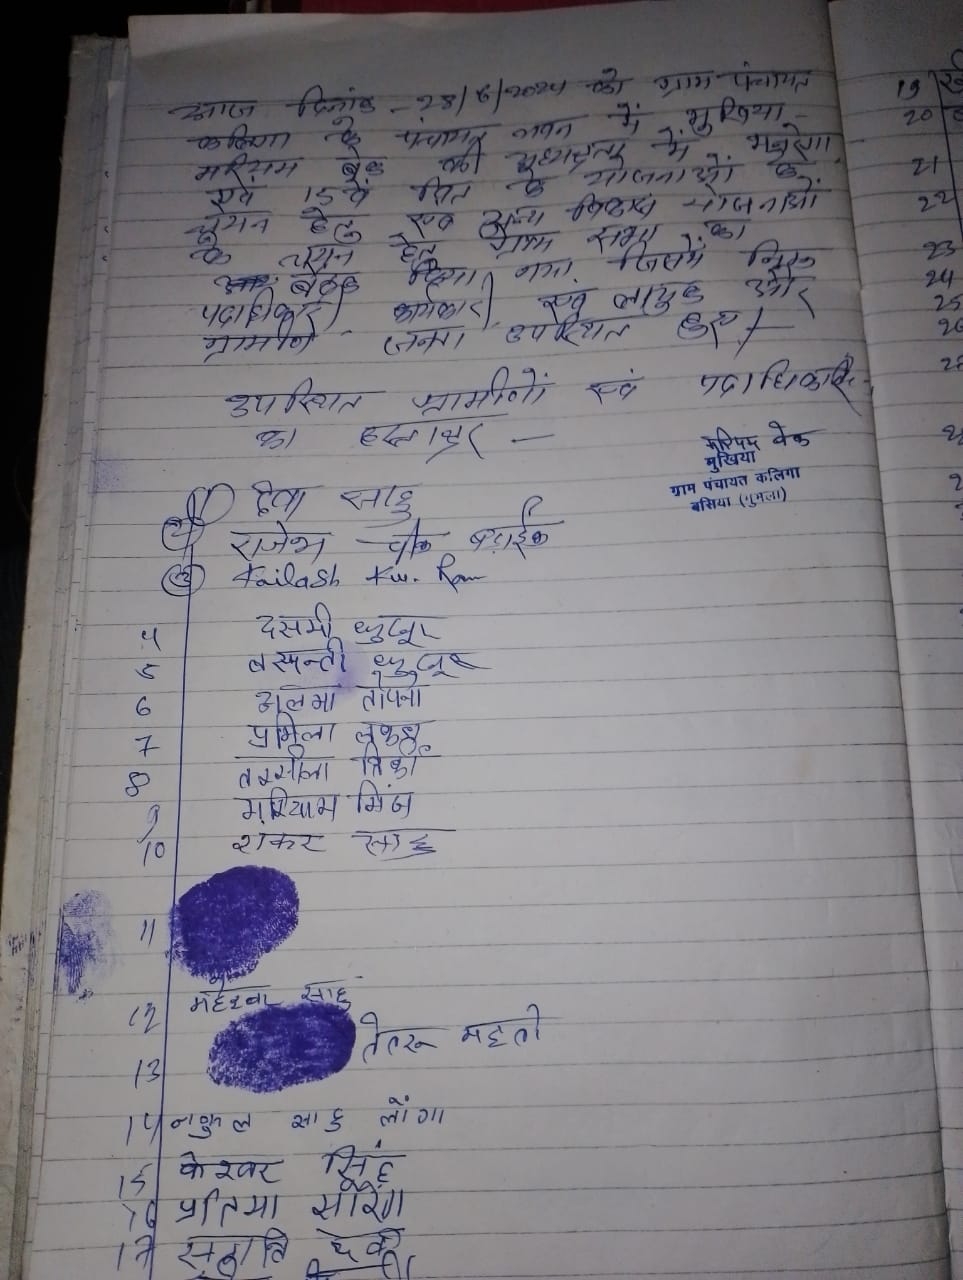 आज दिनांक - 28/6/2024 को ग्राम पंचायत
कलिगा के पंचायत भवन में मुखिया -
मरियम बेक की अध्यक्षता में मनरेगा
एवं 15वें वित के योजनाओं के
चयन हेतु एवं अन्य विकास योजनाओं
के चयन हेतु ग्राम सभा का
बैठक किया गया जिसमें निम्न
पदाधिकारी / कर्मचारी एवं और
ग्रामीण जनता उपस्थित हुए /-
उपस्थित ग्रामीणों एवं पदाधिकारि -
का हस्ताक्षर -
मरियम बेक
मुखिया
ग्राम पंचायत कलिगा
बसिया (गुमला)
① देवा साहु
② राजेश चीक बड़ाईक
③ Kailash Ku. Ram
4 दसमी
5 बसन्ती
6 तोपनो
7 प्रमिला लकड़ा
8 तिर्की
9 मरियाम मिंज
10 शंकर साहु
11
12 महेश्वर साहु
13 तेतरू महतो
14 नकुल साहु लोंगा
15 केश्वर सिंह
16 प्रतिमा सोरेंग
17 देवी
19
20
21
22
23
24
25
26